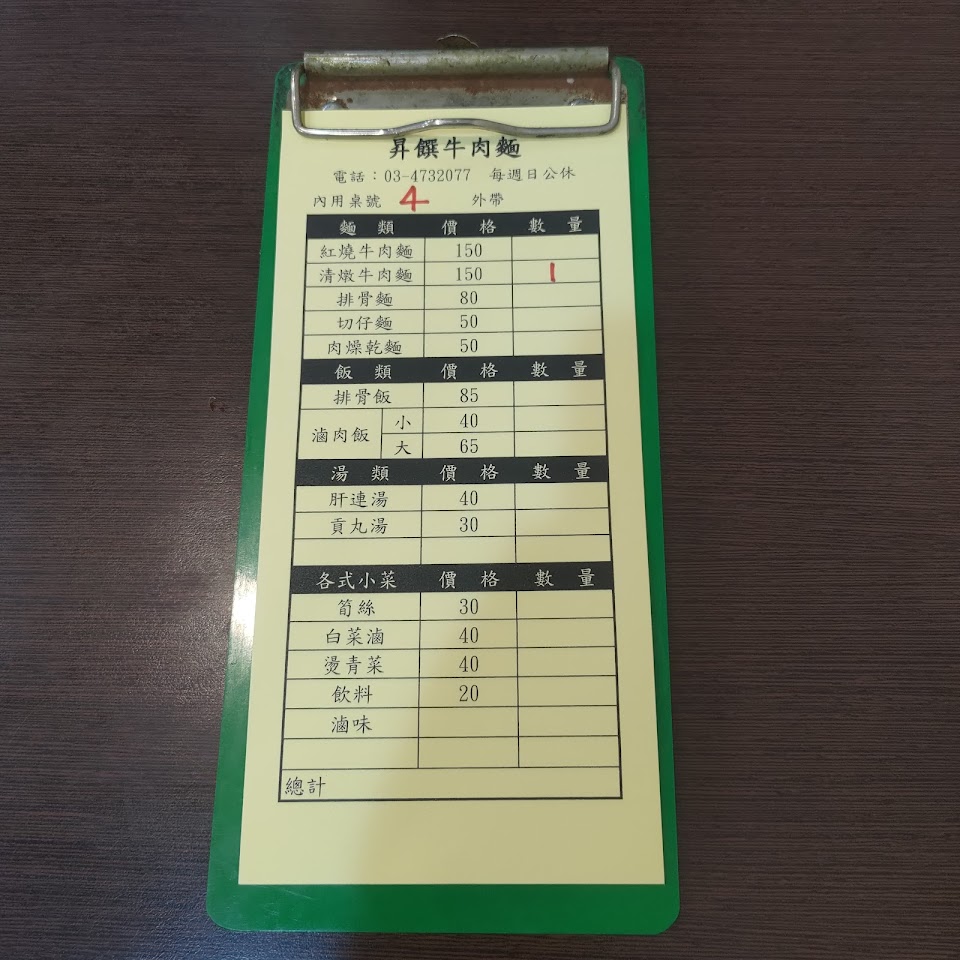 昇饌牛肉麵
電話：03-4732077 每週日公休
內用桌號 4 外帶
麵 類 價 格 數 量
紅燒牛肉麵 150
清燉牛肉麵 150 1
排骨麵 80
切仔麵 50
肉燥乾麵 50
飯 類 價 格 數 量
排骨飯 85
滷肉飯 小 40
大 65
湯 類 價 格 數 量
肝連湯 40
貢丸湯 30
各式小菜 價 格 數 量
筍絲 30
白菜滷 40
燙青菜 40
飲料 20
滷味
總計